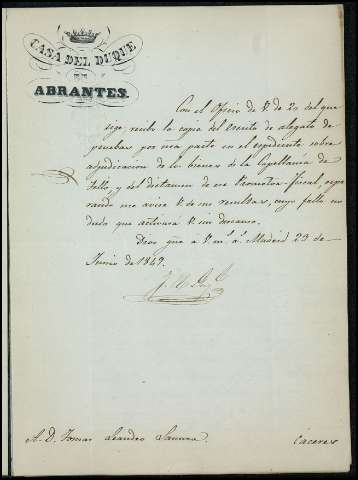 CASA DEL DUQUE
DE
ABRANTES.
Con el Oficio de V. de 21 del que
rige, recibo la copia del escrito de alegato de
pruebas por mi parte en el expediente sobre
adjudicacion de los bienes de la Capellania de
Tello, y del dictamen de ese Promotor Fiscal, espe
rando me avise V. de su resultas, cuyo fallo no
dudo que activará V. sin descanso.
Dios gue. á V. m. a. Madrid 23 de
Junio de 1849.
A. D. Tomas Leandro
Caceres